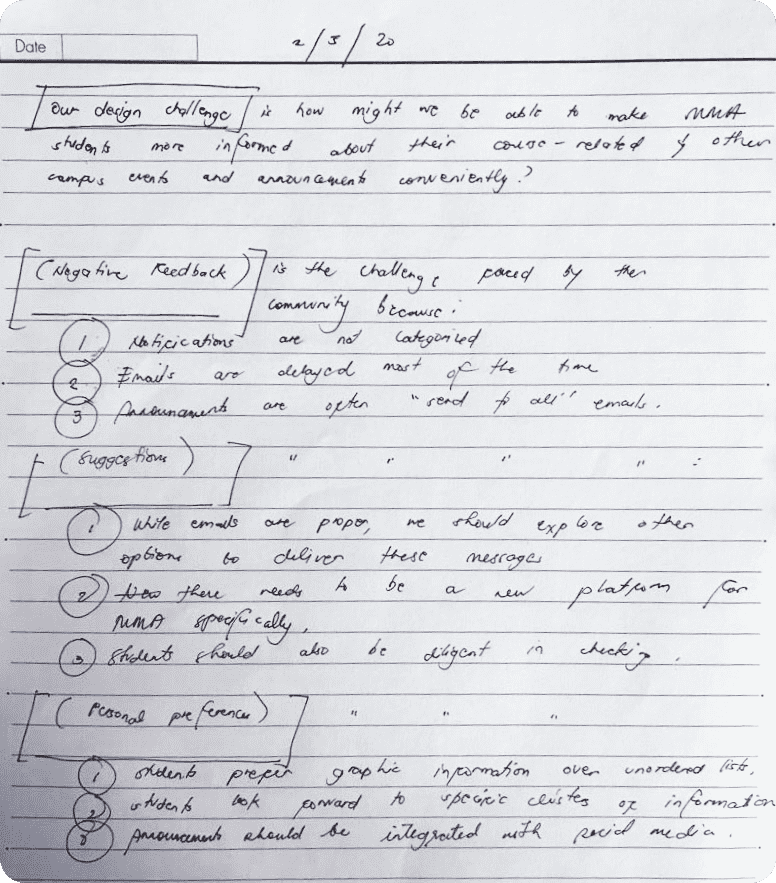 Date
2/3/20
Our design challenge is how might we be able to make MMA
students more informed about their course-related & other
campus events and announcements conveniently?
(Negative Feedback) is the challenge faced by the
community because:
1 Notifications are not categorized
2 Emails are delayed most of the time
3 Announcements are often "send to all" emails.
(Suggestions) " " " " :
1 While emails are proper, we should explore other
options to deliver these messages
2 there needs to be a new platform for
MMA specifically.
3 Students should also be diligent in checking.
(Personal preferences) " " "
1 students prefer graphic information over unordered lists.
2 students look forward to specific clusters of information
3 Announcements should be integrated with social media.